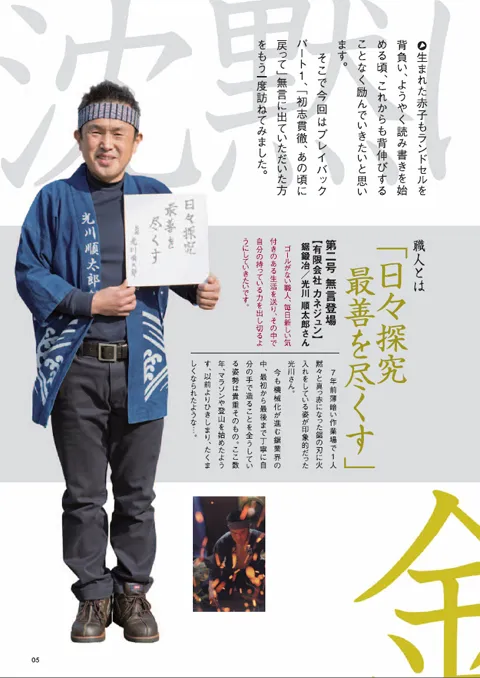 沈黙
生まれた赤子もランドセルを
背負い、ようやく読み書きを始
める頃、これからも背伸びする
ことなく励んでいきたいと思い
ます。
そこで今回はプレイバック
パート1、「初志貫徹、あの頃に
戻って」無言に出ていただいた方
をもう一度訪ねてみました。
職人とは
「日々探究
最善を尽くす」
第二号 無言登場
【有限会社 カネジュン】
鋸鍛冶／光川 順太郎さん
ゴールがない職人、毎日新しい気
付きのある生活を送り、その中で
自分の持っている力を出し切るよ
うにしていきたいです。
7年前薄暗い作業場で1人
黙々と真っ赤になった鋸の刃に火
入れをしている姿が印象的だった
光川さん。
今も機械化が進む鋸業界の
中、最初から最後まで丁寧に自
分の手で造ることを全うしてい
る姿勢は貴重そのもの。ここ数
年、マラソンや登山を始めたよう
で、以前よりひきしまり、たくま
しくなられたような…。
日々探究
最善を
尽くす
光川順太郎
光川順太郎
金
05